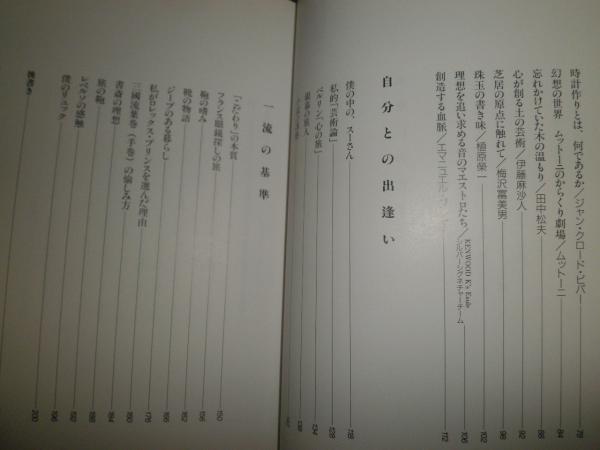 時計作りとは、何であるか／ジャン・クロード・ビバー 78
幻想の世界 ムットーニのからくり劇場／ムットーニ 84
忘れかけていた木の温もり／田中松夫 88
心が創る土の芸術／伊藤麻沙人 92
芝居の原点に触れて／梅沢富美男 98
珠玉の書き味／植原榮一 102
理想を追い求める音のマエストロたち／KENWOOD K's Ender シルバーシグネチャーチーム 106
創造する血脈／エマニュエル 112
自分との出逢い
僕の中の、スーさん 118
私的「芸術論」 128
ベルリン、「心の旅」 134
銀幕の旅人 138
一流の基準
「こだわり」の本質 150
フランス眼鏡探しの旅 156
鞄の嗜み 162
靴の物語 166
ジープのある暮らし 168
私がロレックス・プリンスを選んだ理由 176
三國流葉巻（手巻）の愉しみ方 180
書斎の理想 184
旅の鞄 188
レベルソの感触 192
僕のリュック 196
後書き 200